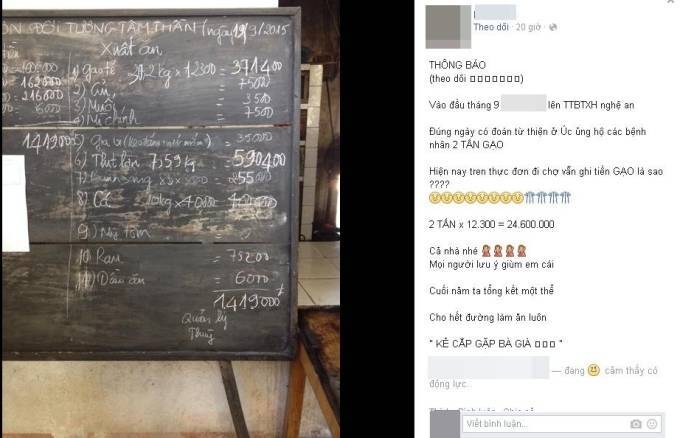 ĐỐI TƯỢNG TÂM THẦN (ngày 19/9/2015
Xuất ăn
1) gạo tẻ 30,2 kg x 12300 = 371400
162000
2) Củi = 7500
216000
3) Muối = 3500
6000
4) Mì chính = 7500
1419000
5) gia vị = 35000
6) Thịt lợn 7359 kg = 590400
= 255000
8) Cá 10kg x 40000 = 400000
9) Mỳ tôm
10) Rau = 75200
11) Dầu ăn = 6000
1419000đ
Quản lý
Thuỷ
Theo dõi · 20 giờ ·
THÔNG BÁO
(theo dõi □□□□□□□)
Vào đầu tháng 9 lên TTBTXH nghệ an
Đúng ngày có đoán từ thiện ở Úc ủng hộ các bệnh
nhân 2 TẤN GẠO
Hiện nay tren thực đơn đi chợ vẫn ghi tiền GẠO là sao
????
2 TẤN x 12.300 = 24.600.000
Cả nhà nhé
Mọi người lưu ý giùm em cái
Cuối năm ta tổng kết một thể
Cho hết đường làm ăn luôn
" KẺ CẮP GẶP BÀ GIÀ □□□ "
— đang cảm thấy có
động lực.
Viết bình luận...